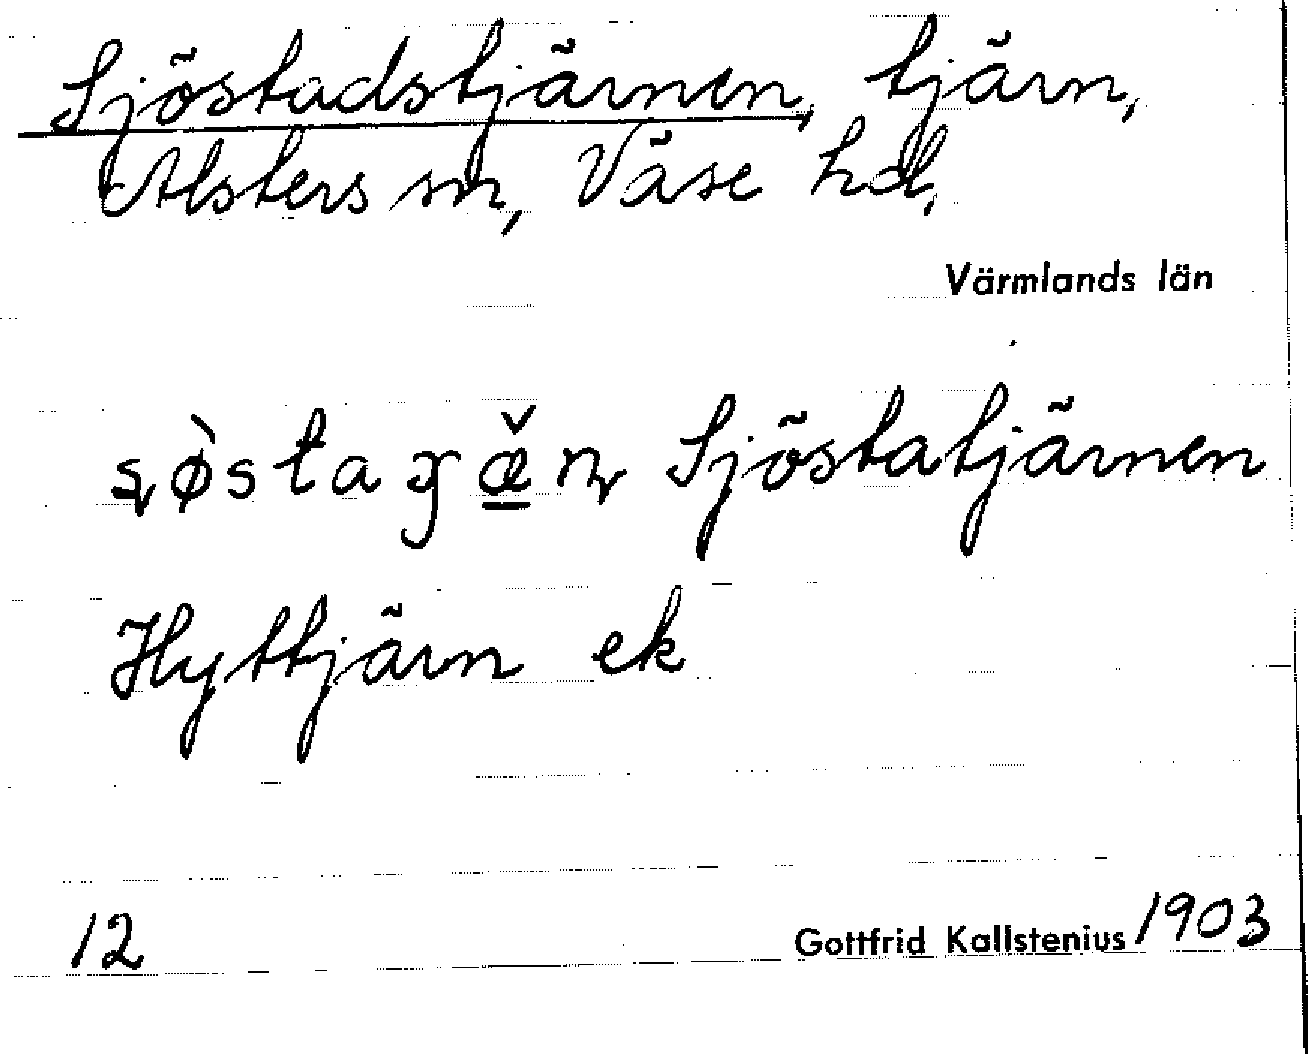 Sjöstadstjärnen, tjärn,
Alsters sn, Väse hd.
Värmlands län
Sjöstatjärnen
Hyttjärn ek
12 Gottfrid Kallstenius 1903